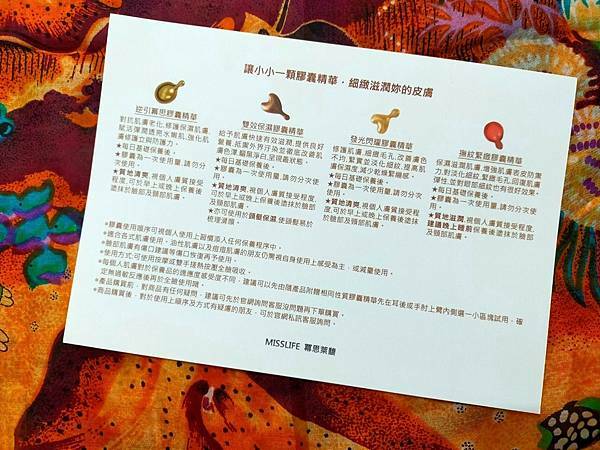 讓小小一顆膠囊精華，細緻滋潤妳的皮膚
逆引冪思膠囊精華
對抗肌膚老化,修護保濕肌膚,
賦活彈潤透亮水嫩肌,強化肌
膚修護立與防護力。
★每日基礎保養後。
★膠囊為一次使用量,請勿分
次使用。
★質地清爽,視個人膚質接受程
度,可於早上或晚上保養後
塗抹於臉部及頸部肌膚。
雙效保濕膠囊精華
給予肌膚快速有效滋潤,提供良好
營養,抵禦外界汙染並徹底改善肌
色澤,驅黑淨白,呈現最狀態。
★每日基礎保養後。
★膠囊為一次使用量,請勿分次使
用。
★質地清爽,視個人膚質接受程度,
可於早上或晚上保養後塗抹於臉部
及頸部肌膚。
★亦可使用於頭髮保濕,使頭髮易於
梳理濃護。
發光閃耀膠囊精華
修護肌膚,細緻毛孔,改善膚色
不均,緊實並淡化細紋,提高肌
膚保濕度,減少乾燥緊繃感。
★每日基礎保養後。
★膠囊為一次使用量,請勿分次
使用。
★質地清爽,視個人膚質接受程度,
可於早上或晚上保養後塗抹於
臉部及頸部肌膚。
撫紋緊緻膠囊精華
保濕滋潤肌膚,增強肌膚表皮防禦
力,對淡化細紋,緊緻毛孔,回復肌膚
彈性,並對頸部細紋也有很好效果。
★每日基礎保養後。
★膠囊為一次使用量,請勿分次使
用。
★質地滋潤,視個人膚質接受程度,
建議晚上睡前保養後塗抹於臉部
及頸部肌膚。
*膠囊使用順序可視個人使用上習慣添入任何保養程序中。
*適合各式肌膚使用,油性肌膚以及痘痘肌膚的朋友仍需視自身使用上感受為主，或減量使用。
*臉部肌膚有傷口建議等傷口恢復再予使用。
*使用方式:可使用按摩或雙手搓熱按壓全臉吸收。
*每個人肌膚對於保養品的適應度感受度不同，建議可以先由隨產品附贈相同性質膠囊精華先在耳後或手肘上臂內側選一小區塊試用，確
定無過敏反應後再於全臉使用唷。
*產品購買前，對商品有任何疑問，建議可先於官網詢問客服沒問題再下單購買。
*商品購買後，對於使用上順序及方式有疑慮的朋友，可於官網私訊客服詢問。
MISSLIFE 冪思萊馥